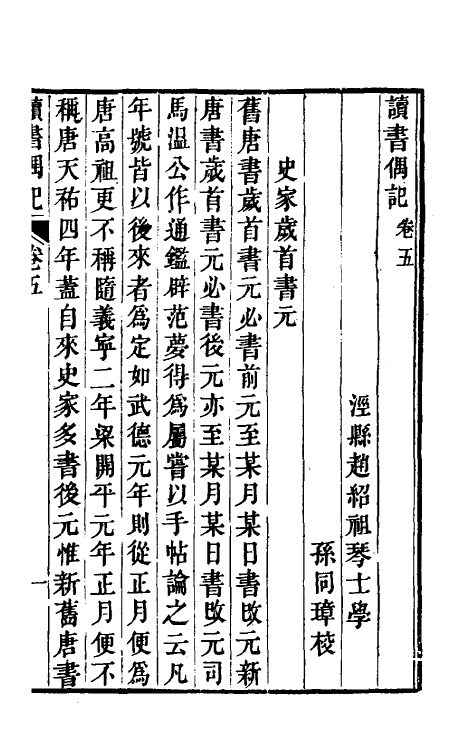 讀書偶記 卷五
涇縣趙紹祖琴士學
孫同璋校
史家歲首書元
舊唐書歲首書元必書前元至某月某日書改元新
唐書歲首書元必書後元亦至某月某日書改元司
馬溫公作通鑑辟范夢得爲屬嘗以手帖論之云凡
年號皆以後來者爲定如武德元年則從正月便爲
唐高祖更不稱隨義寧二年梁開平元年正月便不
稱唐天祐四年蓋自來史家多書後元惟新舊唐書
讀書偶記 卷五 一